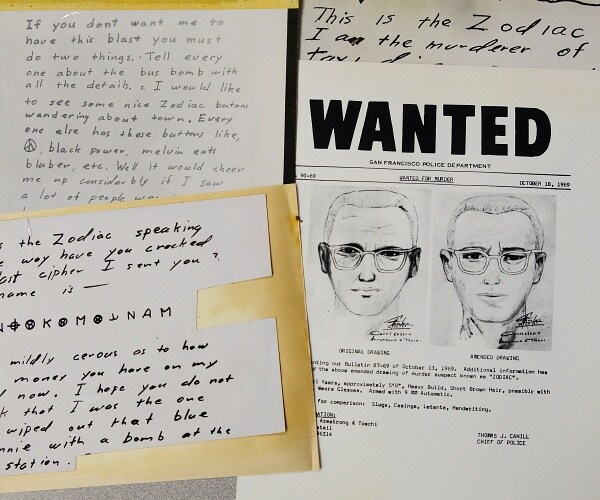 If you dont want me to
have this blast you must
do two things. Tell every
one about the bus bomb with
all the details. I would like
to see some nice Zodiac butons
wandering about town. Every
one else has these buttons like,
black power, melvin eats
bluber, etc. Well it would cheer
me up considerbly if I saw
a lot of people
This is the Zodiac
I am the murderer of
WANTED
SAN FRANCISCO POLICE DEPARTMENT
90-69 WANTED FOR MURDER OCTOBER 18, 1969
ORIGINAL DRAWING AMENDED DRAWING
our Bulletin 87-69 of October 13, 1969. Additional information has
the above amended drawing of murder suspect known as "ZODIAC".
Years, approximately 5'8", Heavy Build, Short Brown Hair, possibly with
Wears Glasses. Armed with 9 MM Automatic.
for comparison: Slugs, Casings, Latents, Handwriting.
Armstrong & Toschi
THOMAS J. CAHILL
CHIEF OF POLICE
the Zodiac speaking
way have you cracked
last cipher I sent you?
name is —
K M NAM
mildly cerous as to how
money you have on my
now. I hope you do not
that I was the one
wiped out that blue
with a bomb at the
station.